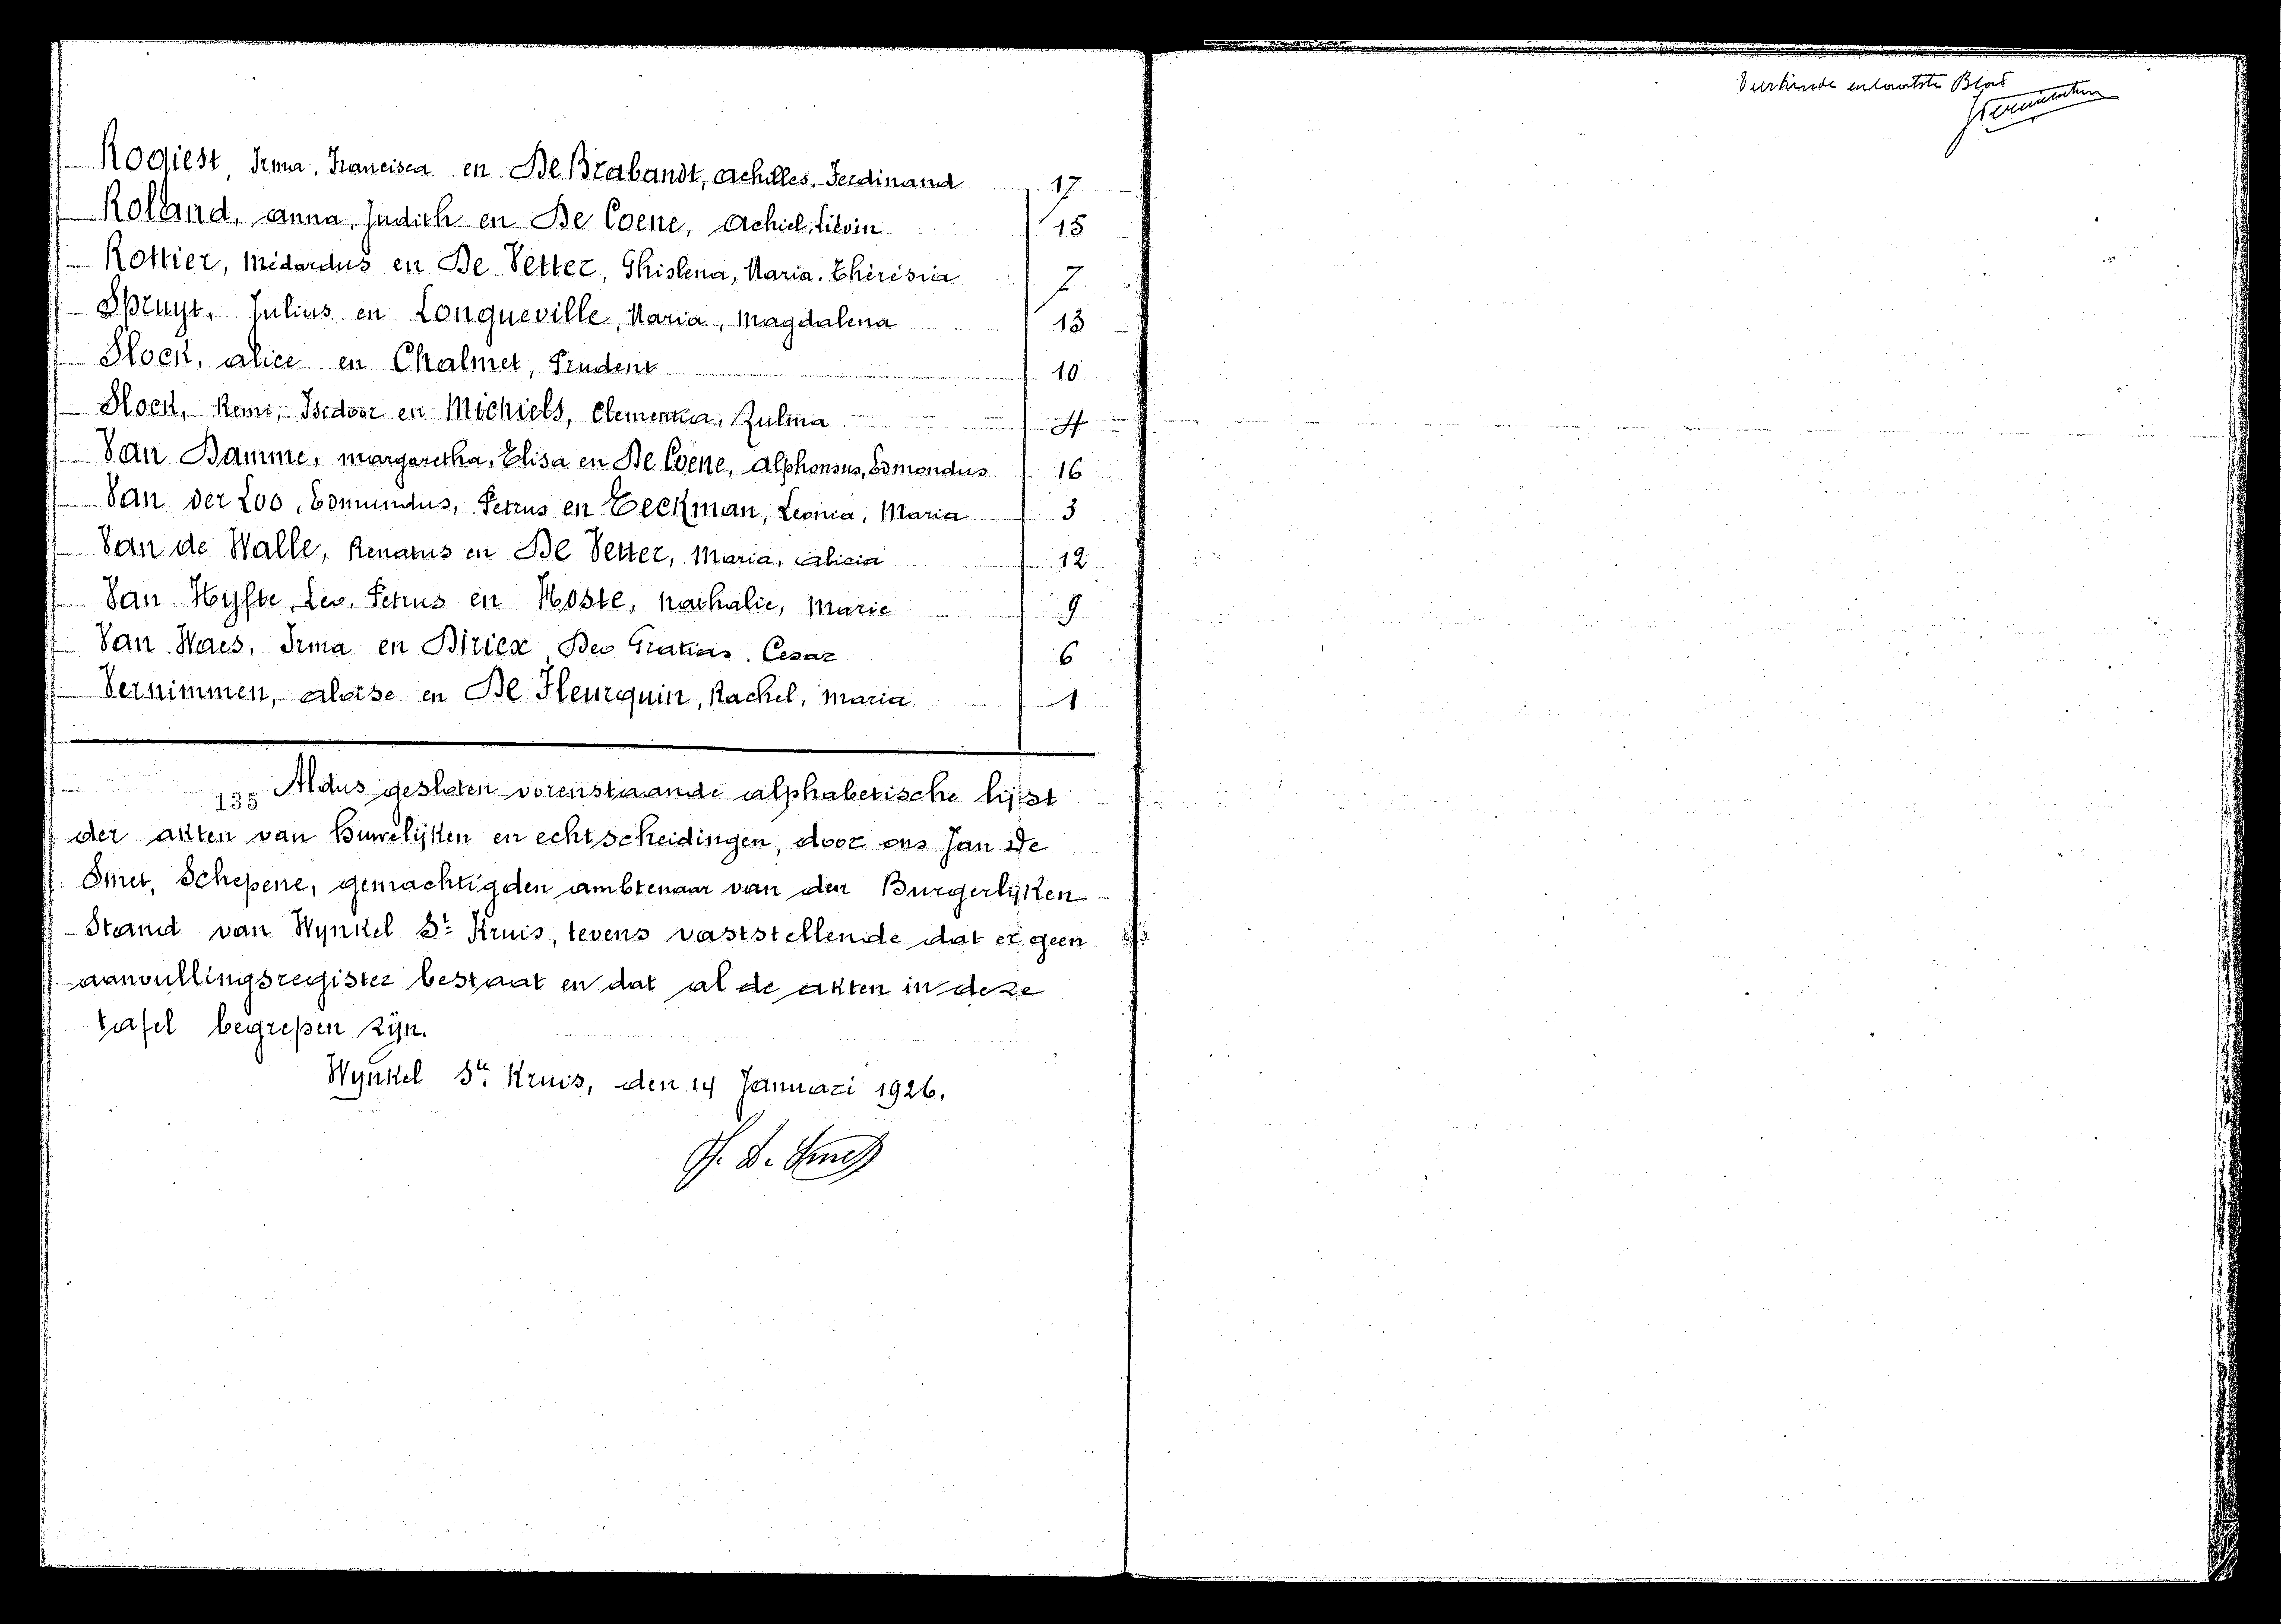 Rogiest, Irma, Francisca en De Brabandt, Achilles, Ferdinand 17
Roland, Anna, Judith en De Coene, Achiel, Liévin 15
Rottier, Médardus en De Vetter, Ghislena, Maria, Thérésia 7
Spruyt, Julius en Longueville, Maria, Magdalena 13
Stock, Alice en Chalmet, Prudent 10
Stock, Remi, Isidoor en Michiels, Clementia, Zulma 4
Van Damme, Margaretha, Elisa en De Coene, Alphonsus, Edmondus 16
Van der Loo, Edmundus, Petrus en Eeckman, Leonia, Maria 3
Van de Walle, Renatus en De Vetter, Maria, Alicia 12
Van Hyfte, Leo, Petrus en Hoste, Nathalie, Marie 9
Van Waes, Irma en Diricx, Deo Gratias, Cesar 6
Vernimmen, Aloïse en De Fleurquin, Rachel, Maria 1
135 Aldus gesloten vorenstaande alphabetische lijst
der akten van Huwelijken en echtscheidingen, door ons Jan De
Smet, Schepene, gemachtigden ambtenaar van den Burgerlijken
Stand van Wynkel St Kruis, tevens vaststellende dat er geen
aanvullingsregister bestaat en dat al de akten in deze
tafel begrepen zijn.
Wynkel St. Kruis, den 14 Januari 1926.
J. D. Smet
en laatste Blad